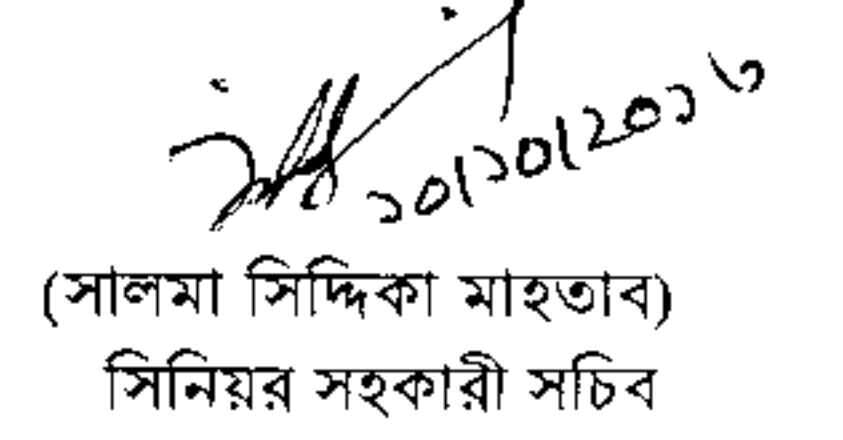 ১০/১০/২০১৬
(সালমা সিদ্দিকা মাহতাব)
সিনিয়র সহকারী সচিব